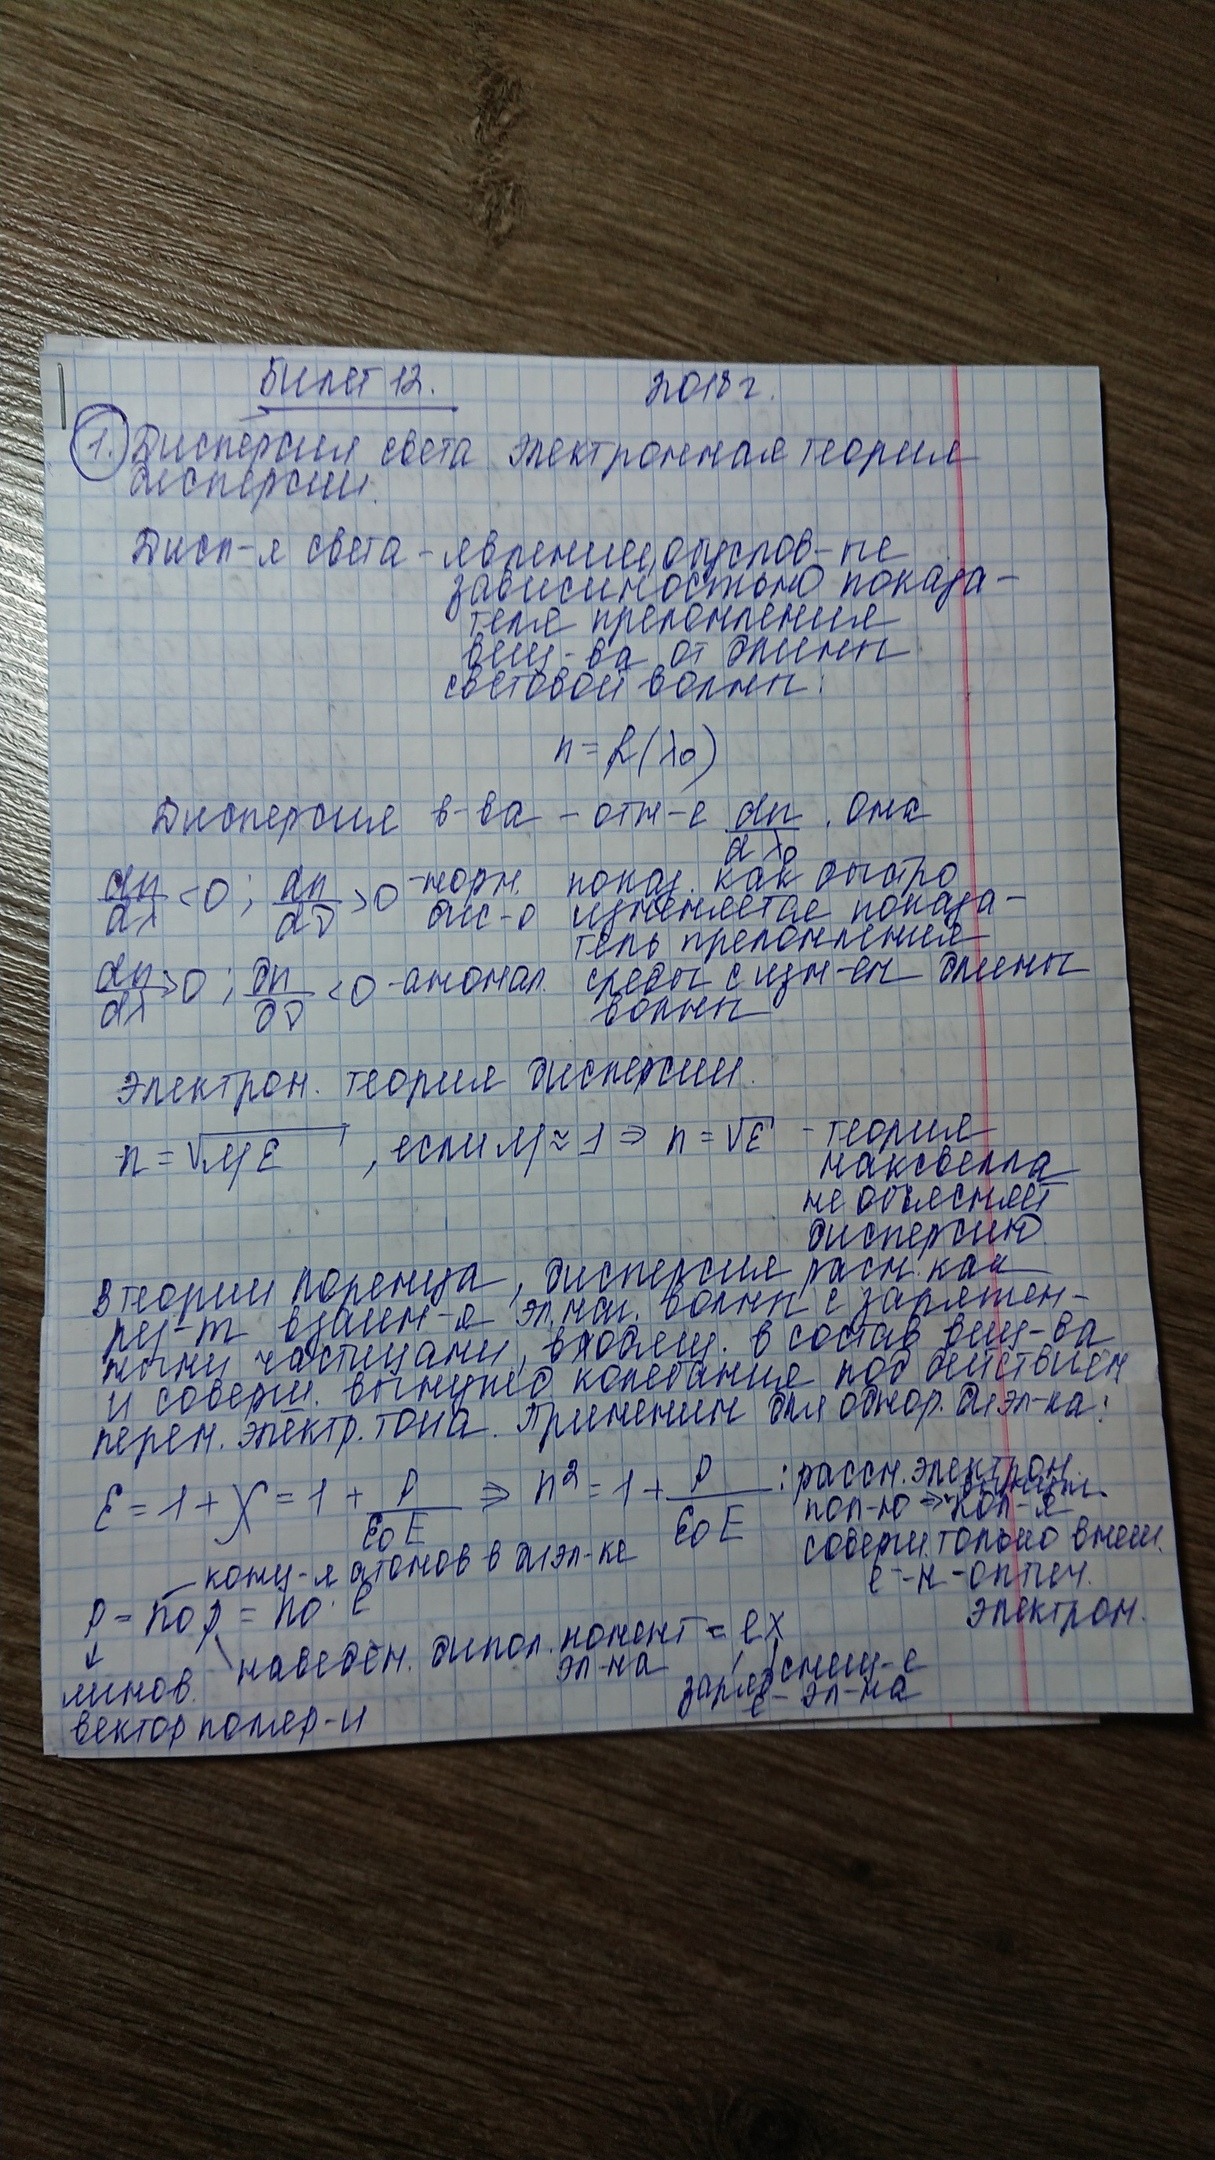 Билет 12. 2018 г.
1. Дисперсия света электронная теория
дисперсии.
Дисп-я света - явления, обуслов-ые
зависимостью показа-
теля преломления
вещ-ва от длины
световой волны:
n = f(λ₀)
Дисперсия в-ва - отн-е dn/dλ₀. Она
dn/dλ < 0; dn/dν > 0 - норм. показ. как быстро
дис-я изменяется показа-
тель преломления
dn/dλ > 0; dn/dν < 0 - аномал. среды с изм-ем длины
волны
Электрон. теория дисперсии.
n = √με, если μ ≈ 1 ⇒ n = √ε - теория
максвелла
не объясняет
дисперсию
В теории лоренца, дисперсия расм. как
рез-т взаим-я эл.маг. волны с заряжен-
ными частицами, входящ. в состав вещ-ва
и соверш. вынужд колебания под действием
перем. электр. тока. Применим для однор. диэл-ка:
ε = 1 + χ = 1 + P/ε₀E ⇒ n² = 1 + P/ε₀E : рассм. электрон.
пол-ю ⇒ вынужд. кол-я
соверш. только внеш.
e⁻-н - оптич.
электрон.
конц-я атомов в диэл-ке
P = n₀p = n₀·e
наведён. дипол. момент = ex
эл-на
мгнов.
вектор поляр-и
заряд e⁻ смещ-е
эл-на